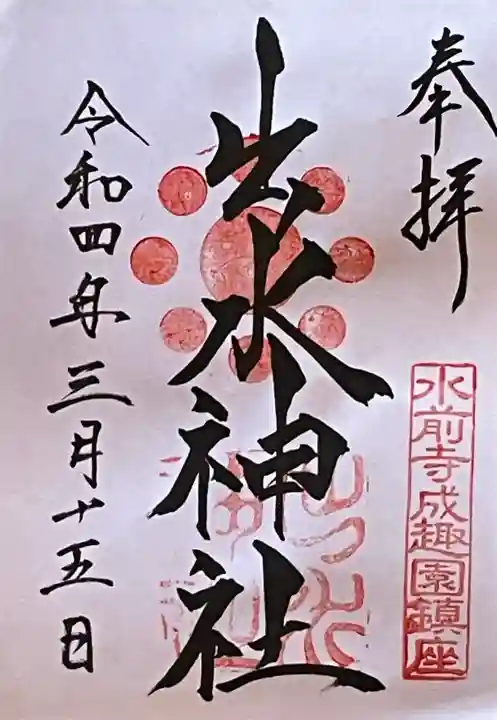 奉拝
水前寺成趣園鎮座
出水神社
令和四年三月十五日